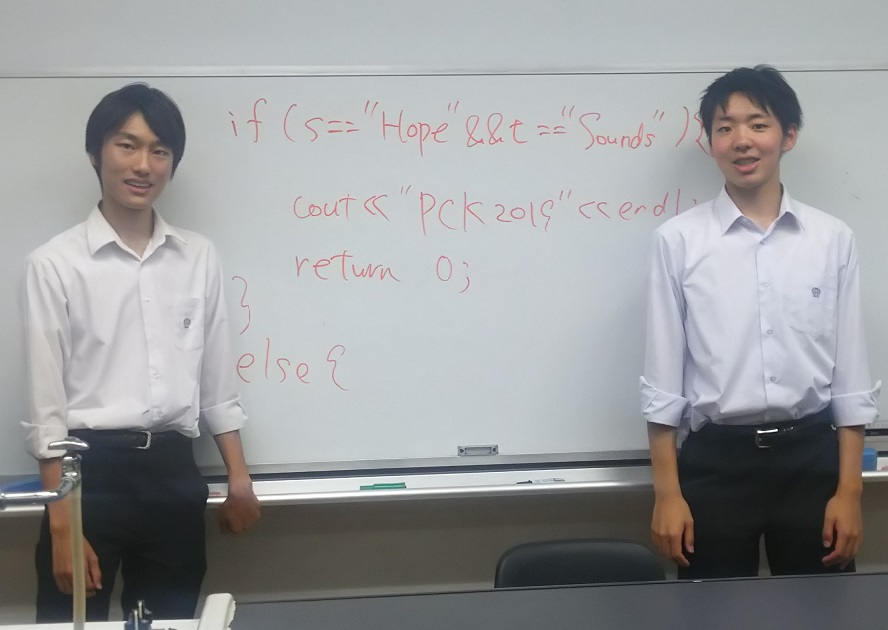 if (s=="Hope"&&t=="Sounds"){
cout<<"PCK2019"<<endl;
return 0;
}
else{